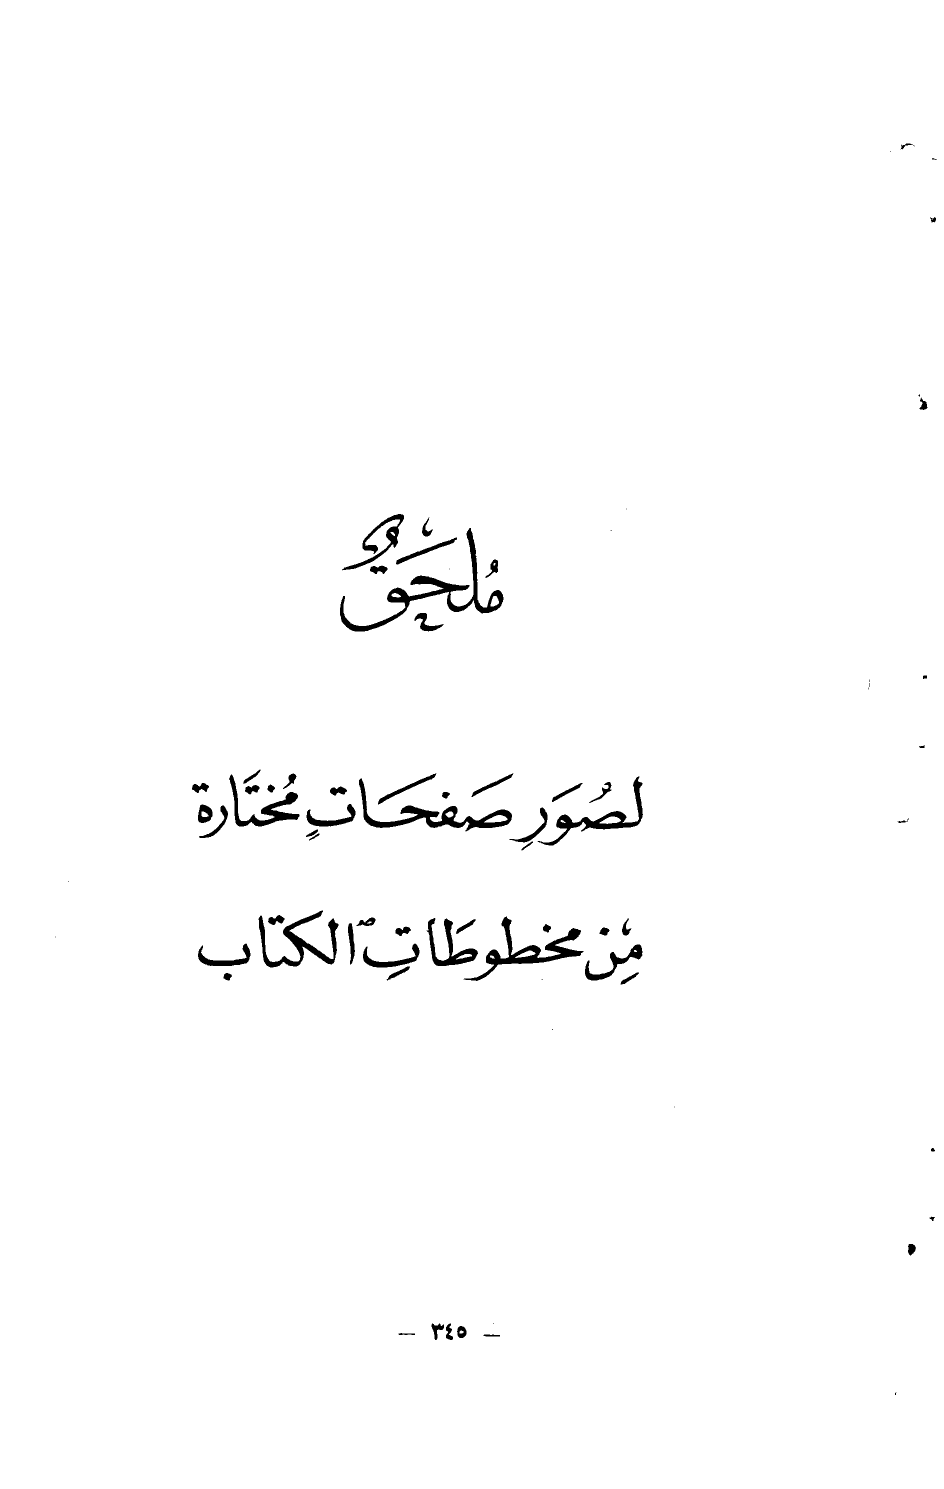 مُلْحَقٌ
لصُوَرِ صَفحَاتٍ مُختَارة
مِنْ مخطوطَاتِ الكتاب
– ٣٤٥ –